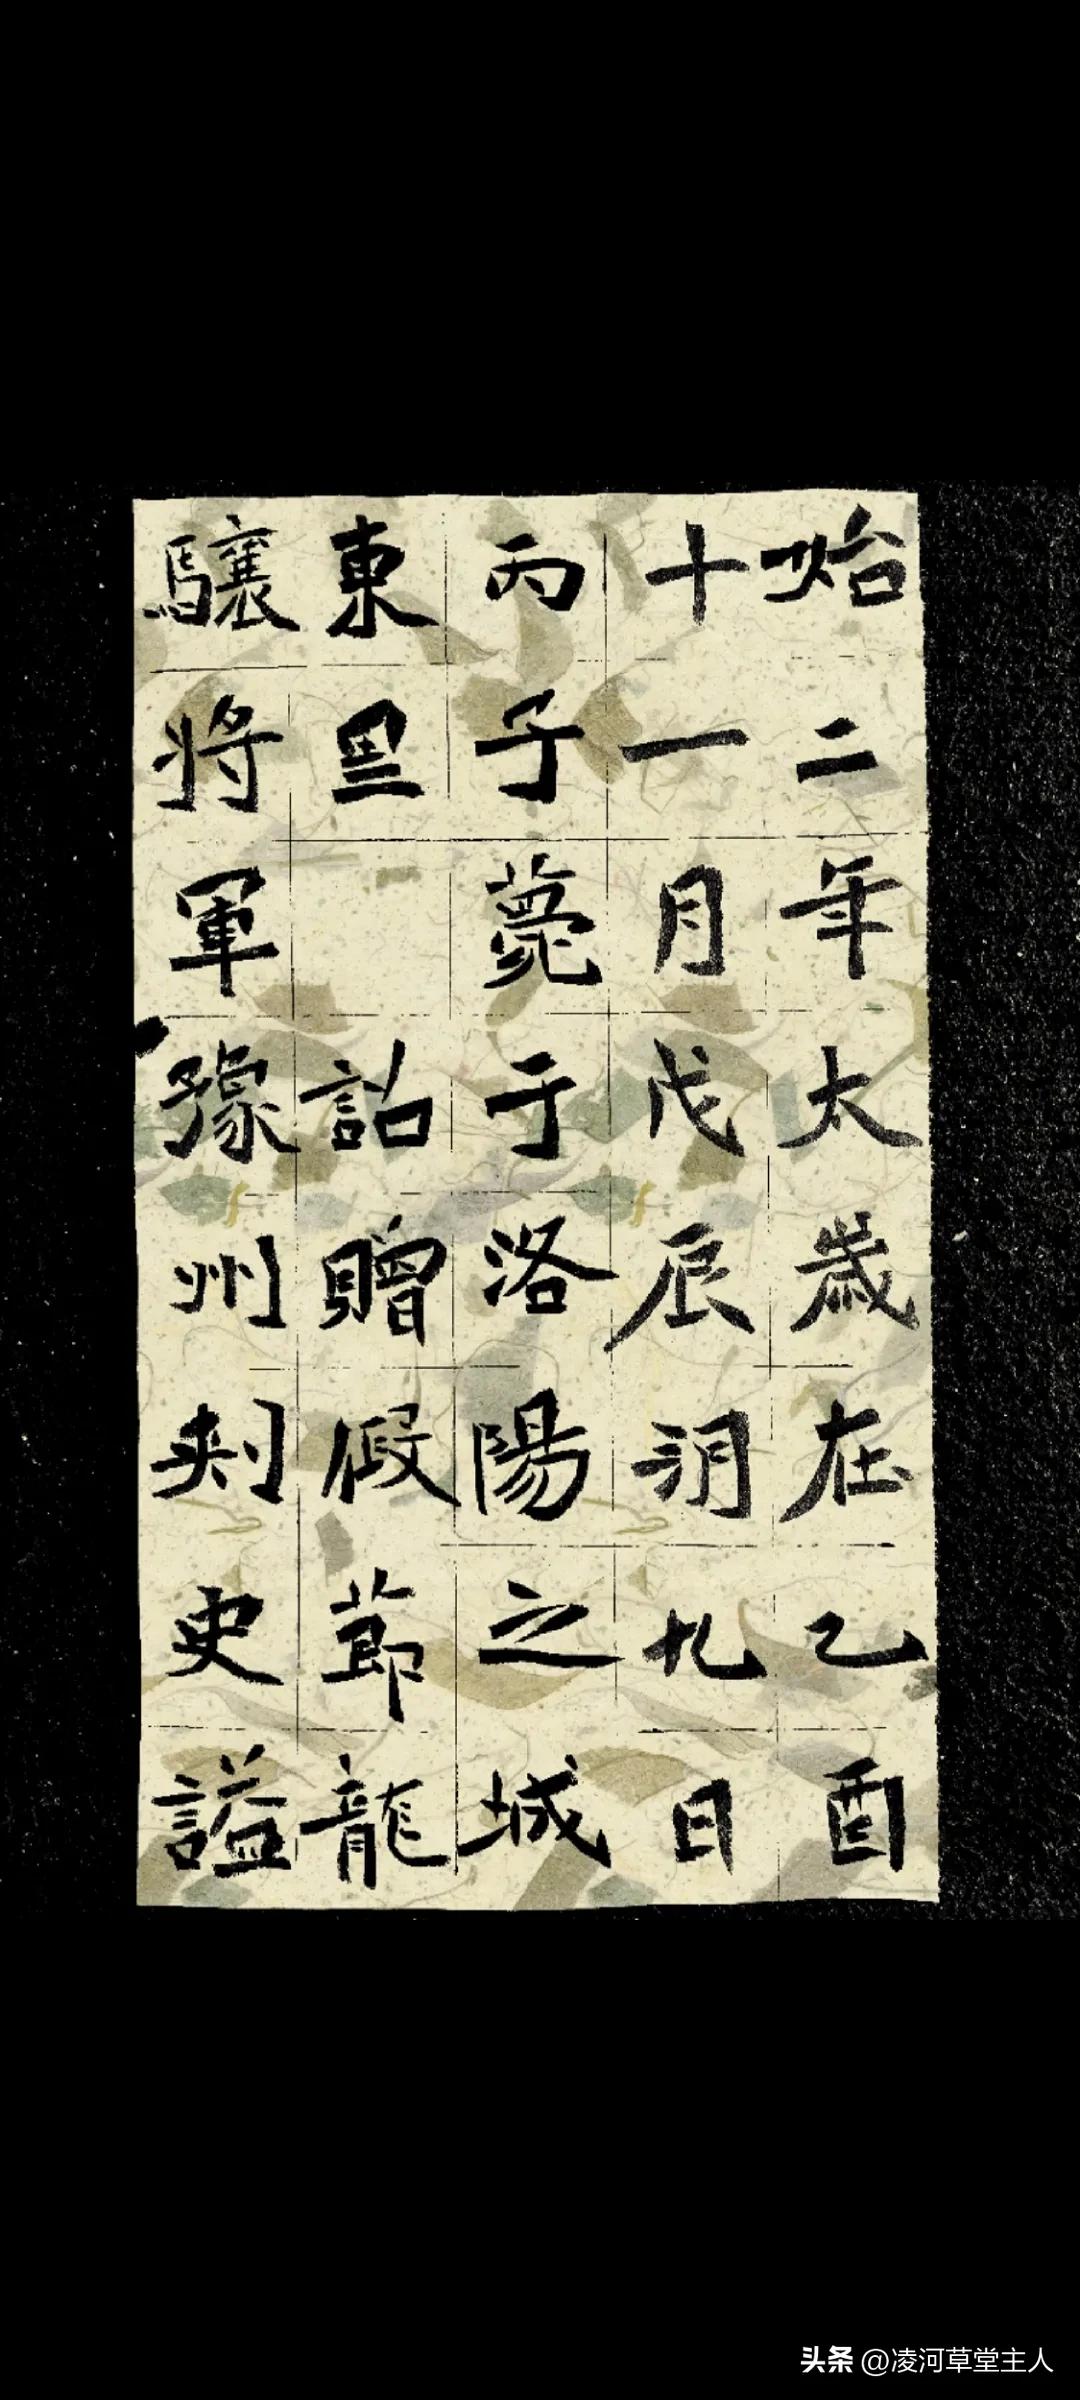 始二年太歲在乙酉
十一月戊辰朔九日
丙子薨于洛陽之城
東里 詔贈假節龍
驤將軍豫州刺史謚
头条 @凌河草堂主人